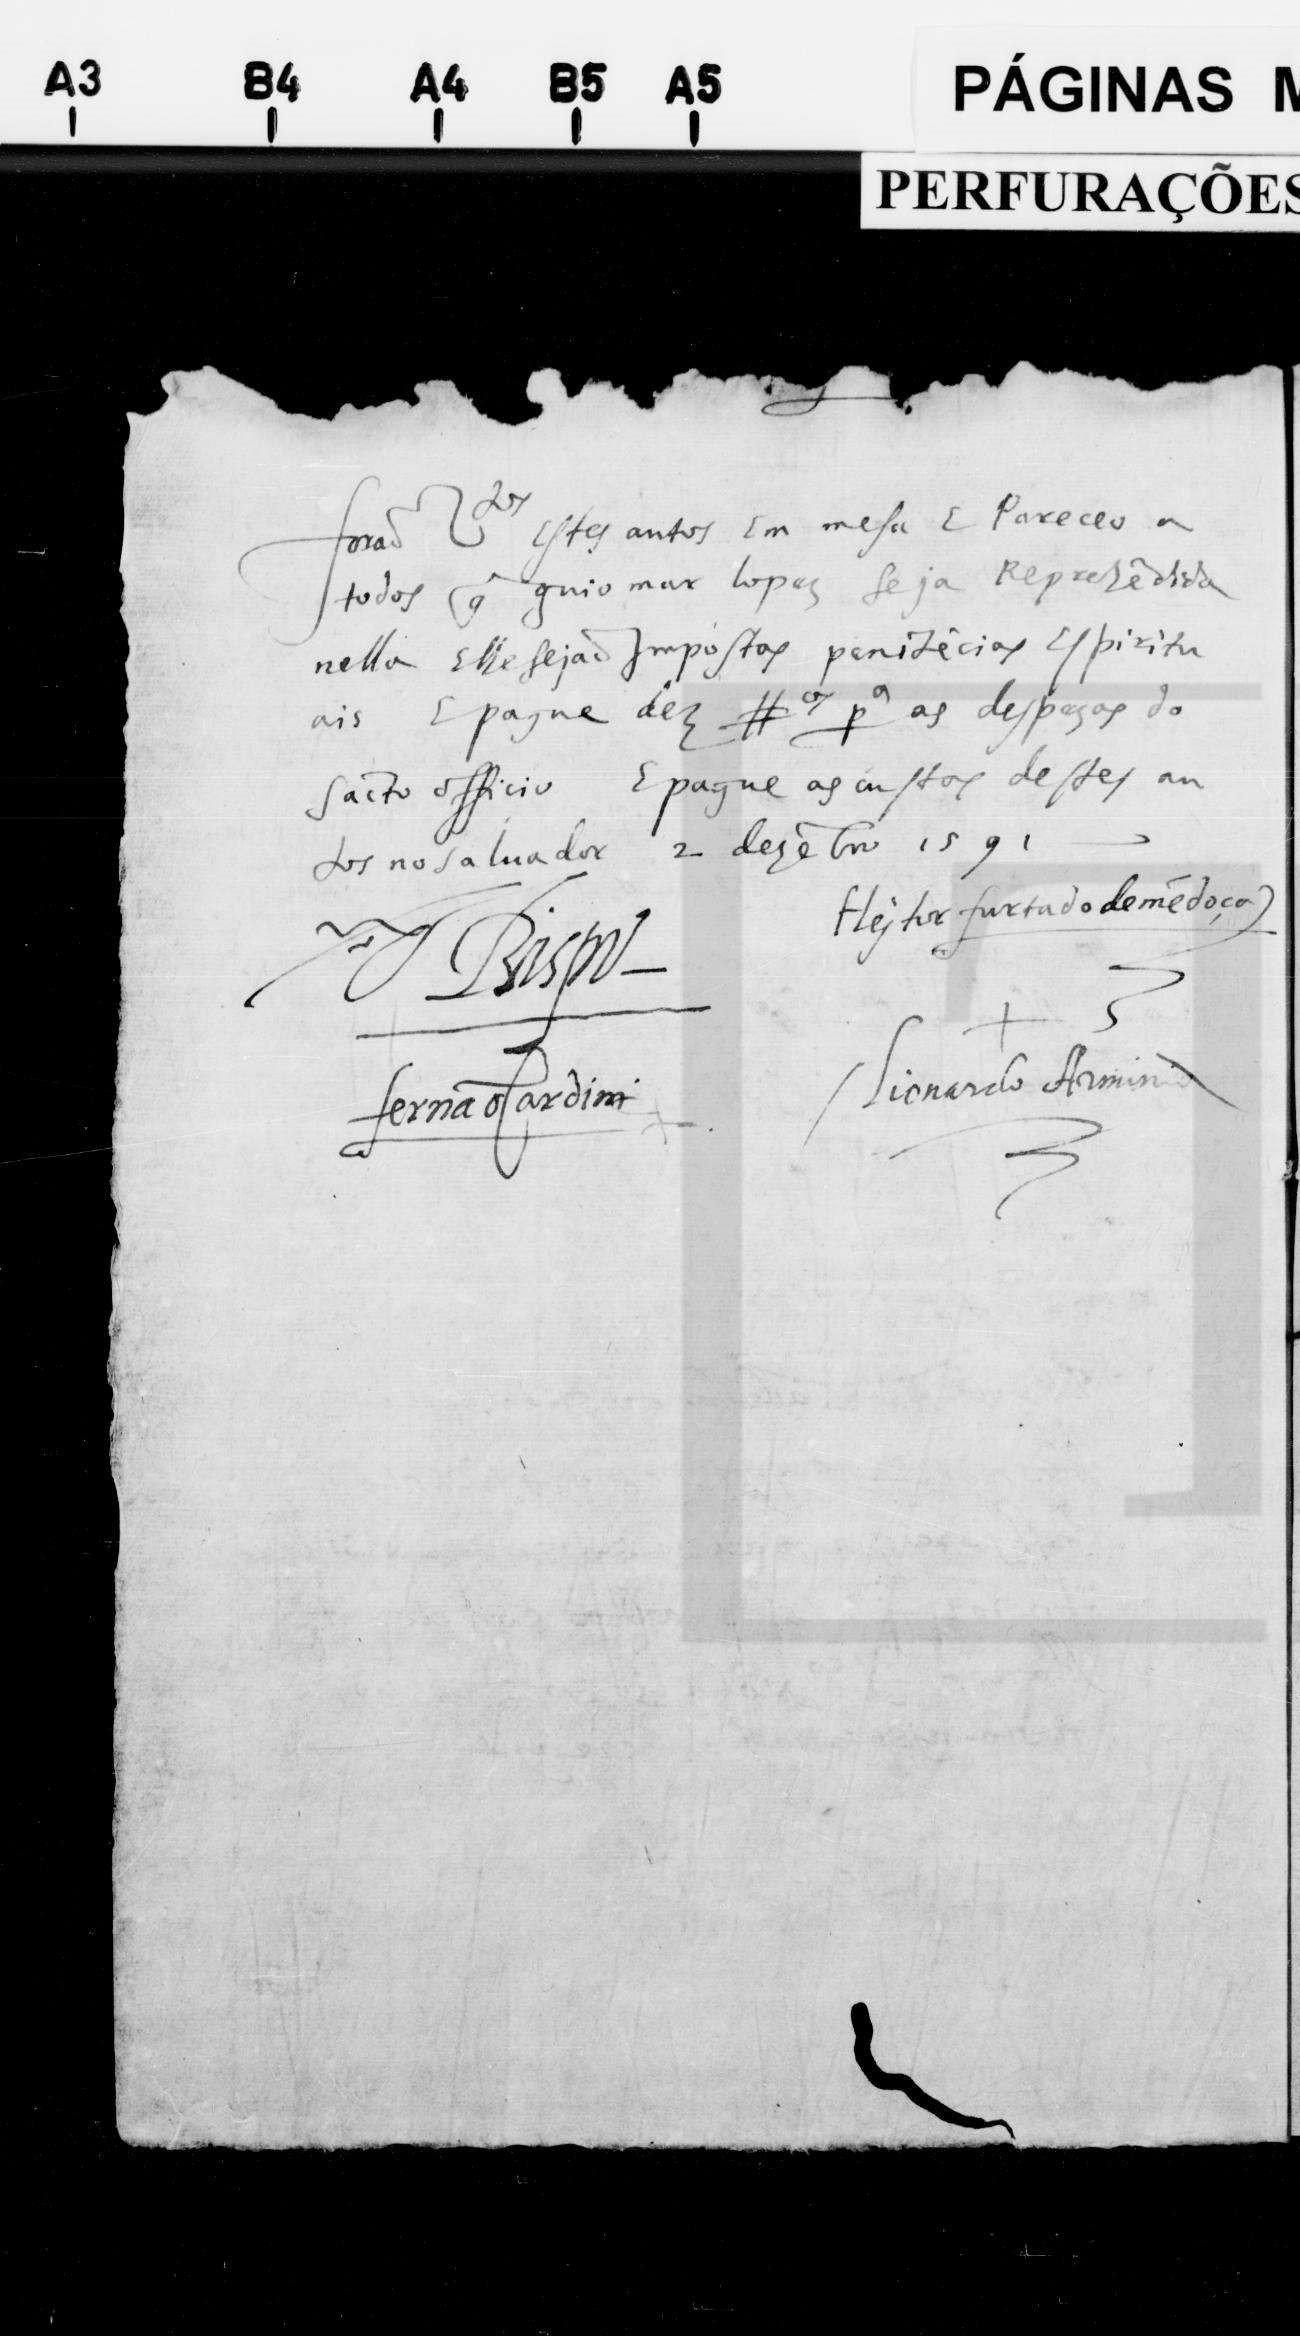 A3 B4 A4 B5 A5
PÁGINAS M
PERFURAÇÕES
forão vtos estes autos Em mesa E Pareceo a
todos q̃ guiomar lopez seja Reprehẽdida
nella E lhe sejão Impostas penitẽcias Espiritu
ais E pague dez #os pa as despezas do
sācto officio E pague as custas destes au
tos no saluador 2 dezẽbro 1591
Bispo
Heitor furtado de mẽdoça
fernão Cardim
Lionardo Arminio